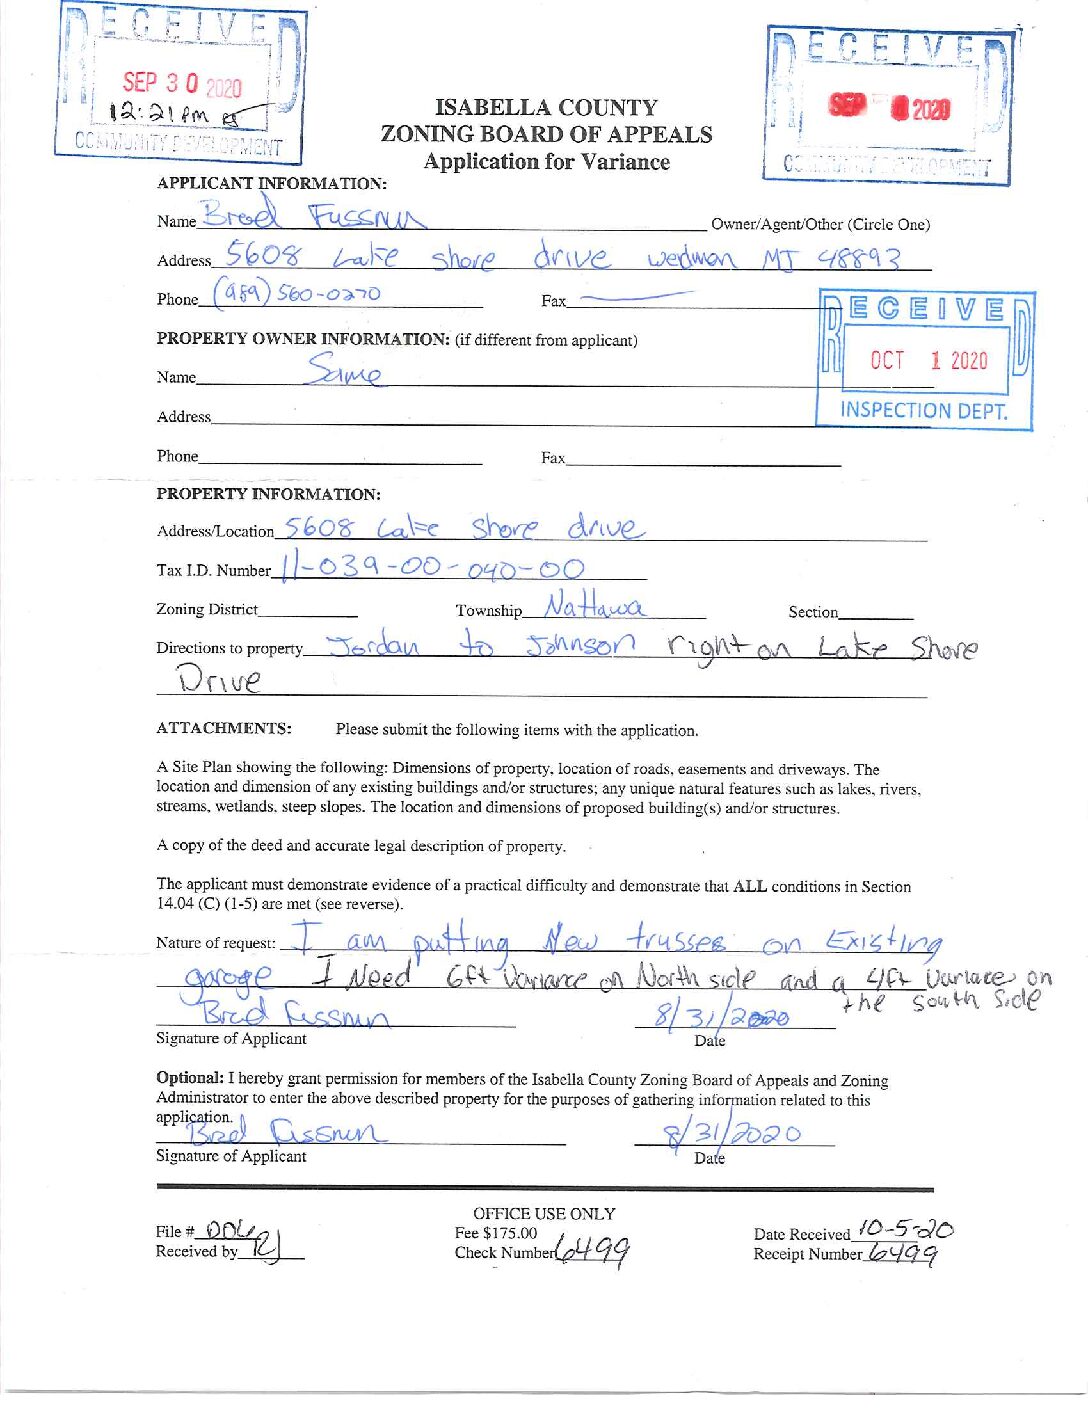 RECEIVED
SEP 30 2020
12:21 PM
COMMUNITY DEVELOPMENT
RECEIVED
SEP 2020
COMMUNITY DEVELOPMENT
ISABELLA COUNTY
ZONING BOARD OF APPEALS
Application for Variance
APPLICANT INFORMATION:
Name Brad Fussnun Owner/Agent/Other (Circle One)
Address 5608 Lake shore drive wedman MI 48893
Phone (989) 560-0270 Fax
RECEIVED
OCT 1 2020
INSPECTION DEPT.
PROPERTY OWNER INFORMATION: (if different from applicant)
Name Same
Address
Phone Fax
PROPERTY INFORMATION:
Address/Location 5608 Lake Shore drive
Tax I.D. Number 11-039-00-040-00
Zoning District Township Nattawa Section
Directions to property Jordan to Johnson right on Lake Shore
Drive
ATTACHMENTS: Please submit the following items with the application.
A Site Plan showing the following: Dimensions of property, location of roads, easements and driveways. The
location and dimension of any existing buildings and/or structures; any unique natural features such as lakes, rivers,
streams, wetlands, steep slopes. The location and dimensions of proposed building(s) and/or structures.
A copy of the deed and accurate legal description of property.
The applicant must demonstrate evidence of a practical difficulty and demonstrate that ALL conditions in Section
14.04 (C) (1-5) are met (see reverse).
Nature of request: I am putting New trusses on Existing
garage I Need 6ft Variance on North side and a 4ft Variace on
the south Side
Brad Fussnun 8/31/2020
Signature of Applicant Date
Optional: I hereby grant permission for members of the Isabella County Zoning Board of Appeals and Zoning
Administrator to enter the above described property for the purposes of gathering information related to this
application.
Brad Fussnun 8/31/2020
Signature of Applicant Date
OFFICE USE ONLY
File # Fee $175.00 Date Received 10-5-20
Received by Check Number 6499 Receipt Number 6499